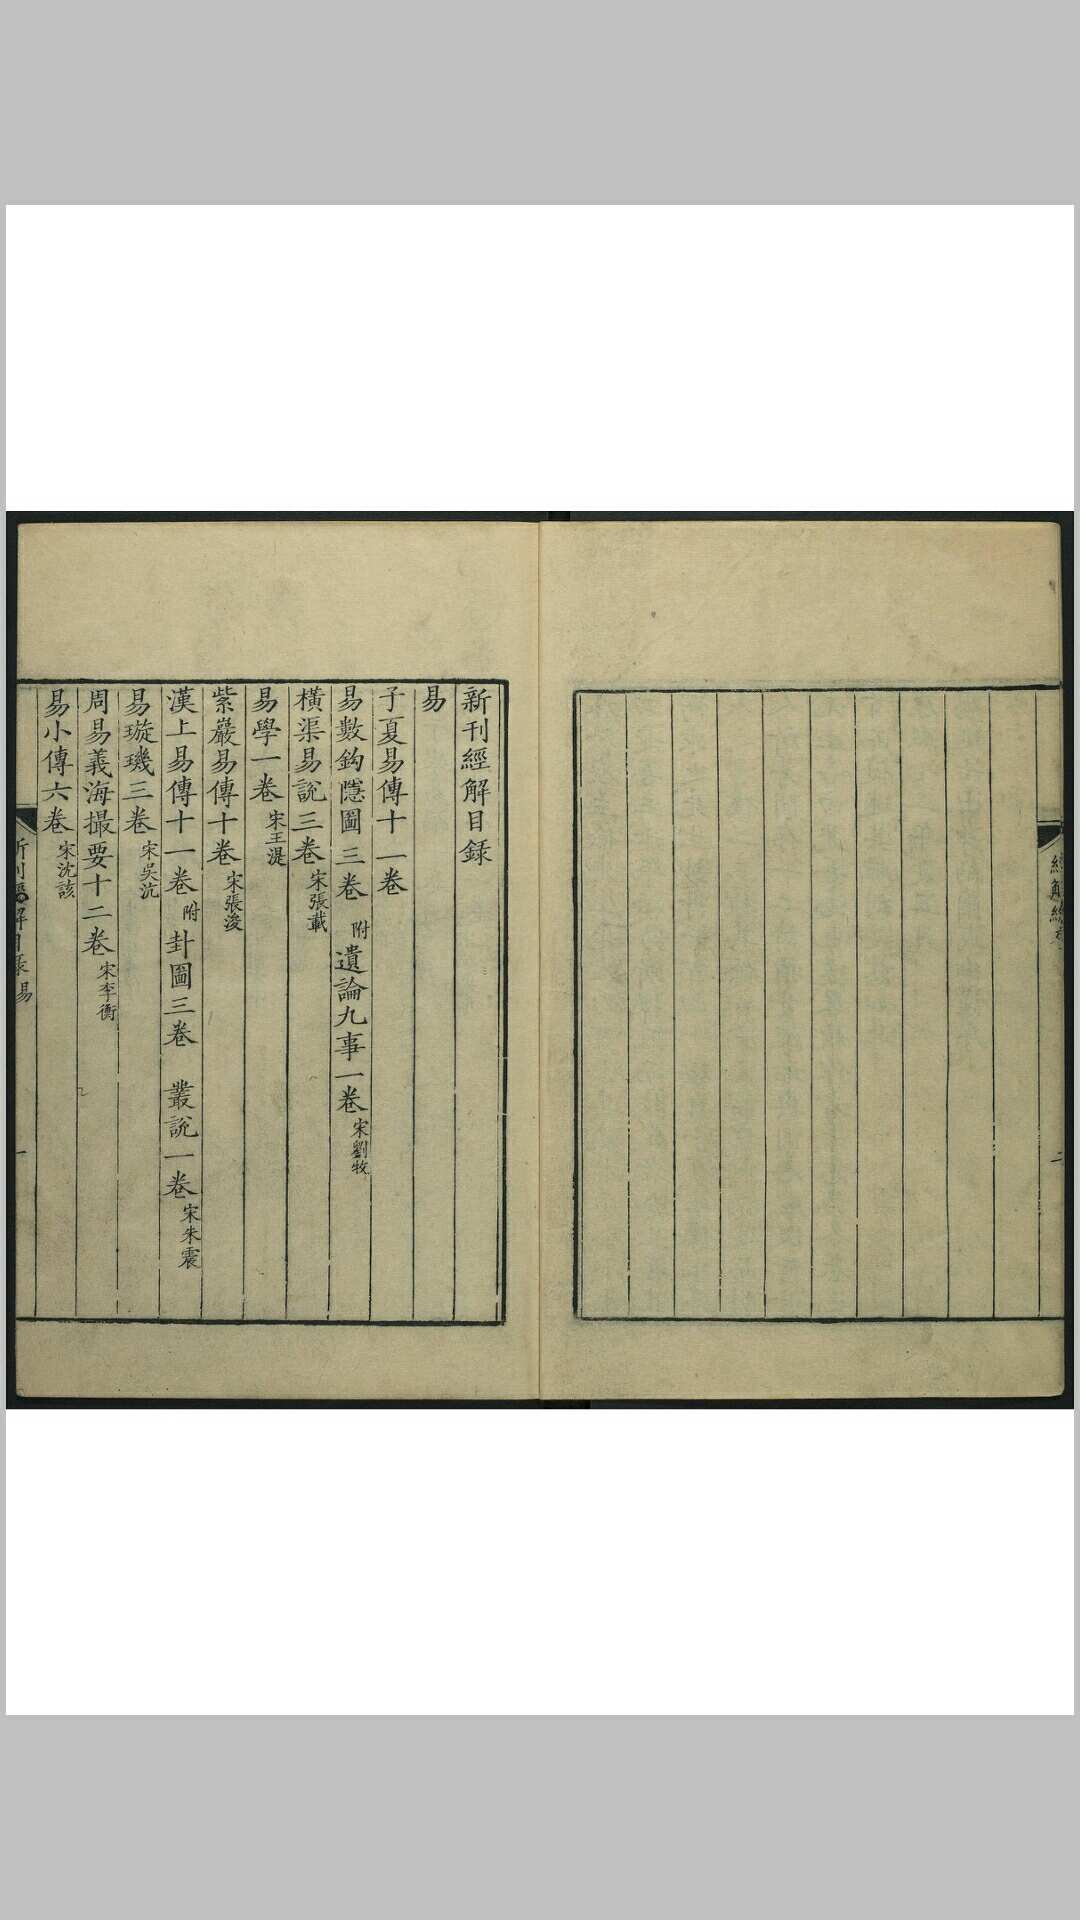 新刊經解目録
易
子夏易傳十一卷
易數鈎隱圖三卷 附遺論九事一卷 宋劉牧
橫渠易說三卷 宋張載
易學一卷 宋王湜
紫巖易傳十卷 宋張浚
漢上易傳十一卷 附卦圖三卷 叢說一卷 宋朱震
易璇璣三卷 宋吳沆
周易義海撮要十二卷 宋李衡
易小傳六卷 宋沈該